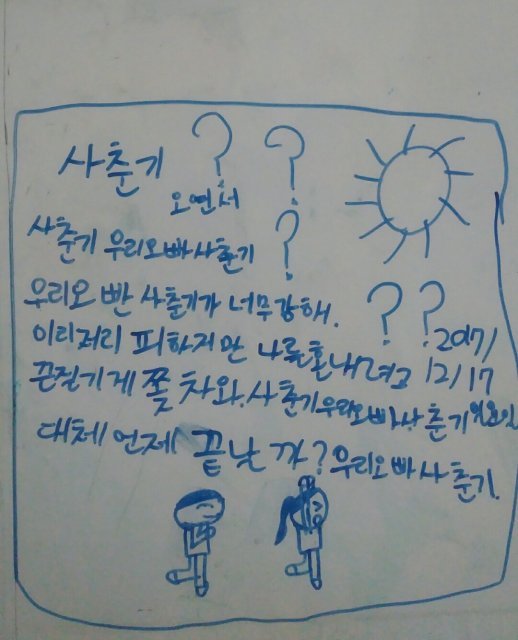 사춘기 ? ?
오연서
사춘기 우리오빠사춘기 ?
우리오빤 사춘기가 너무강해. ? ?
이리저리 피하지만 나를혼내려고
2017/
12/17
일요일
끈질기게 쫓차와. 사춘기우리오빠사춘기
대체 언제 끝난까? 우리오빠사춘기.